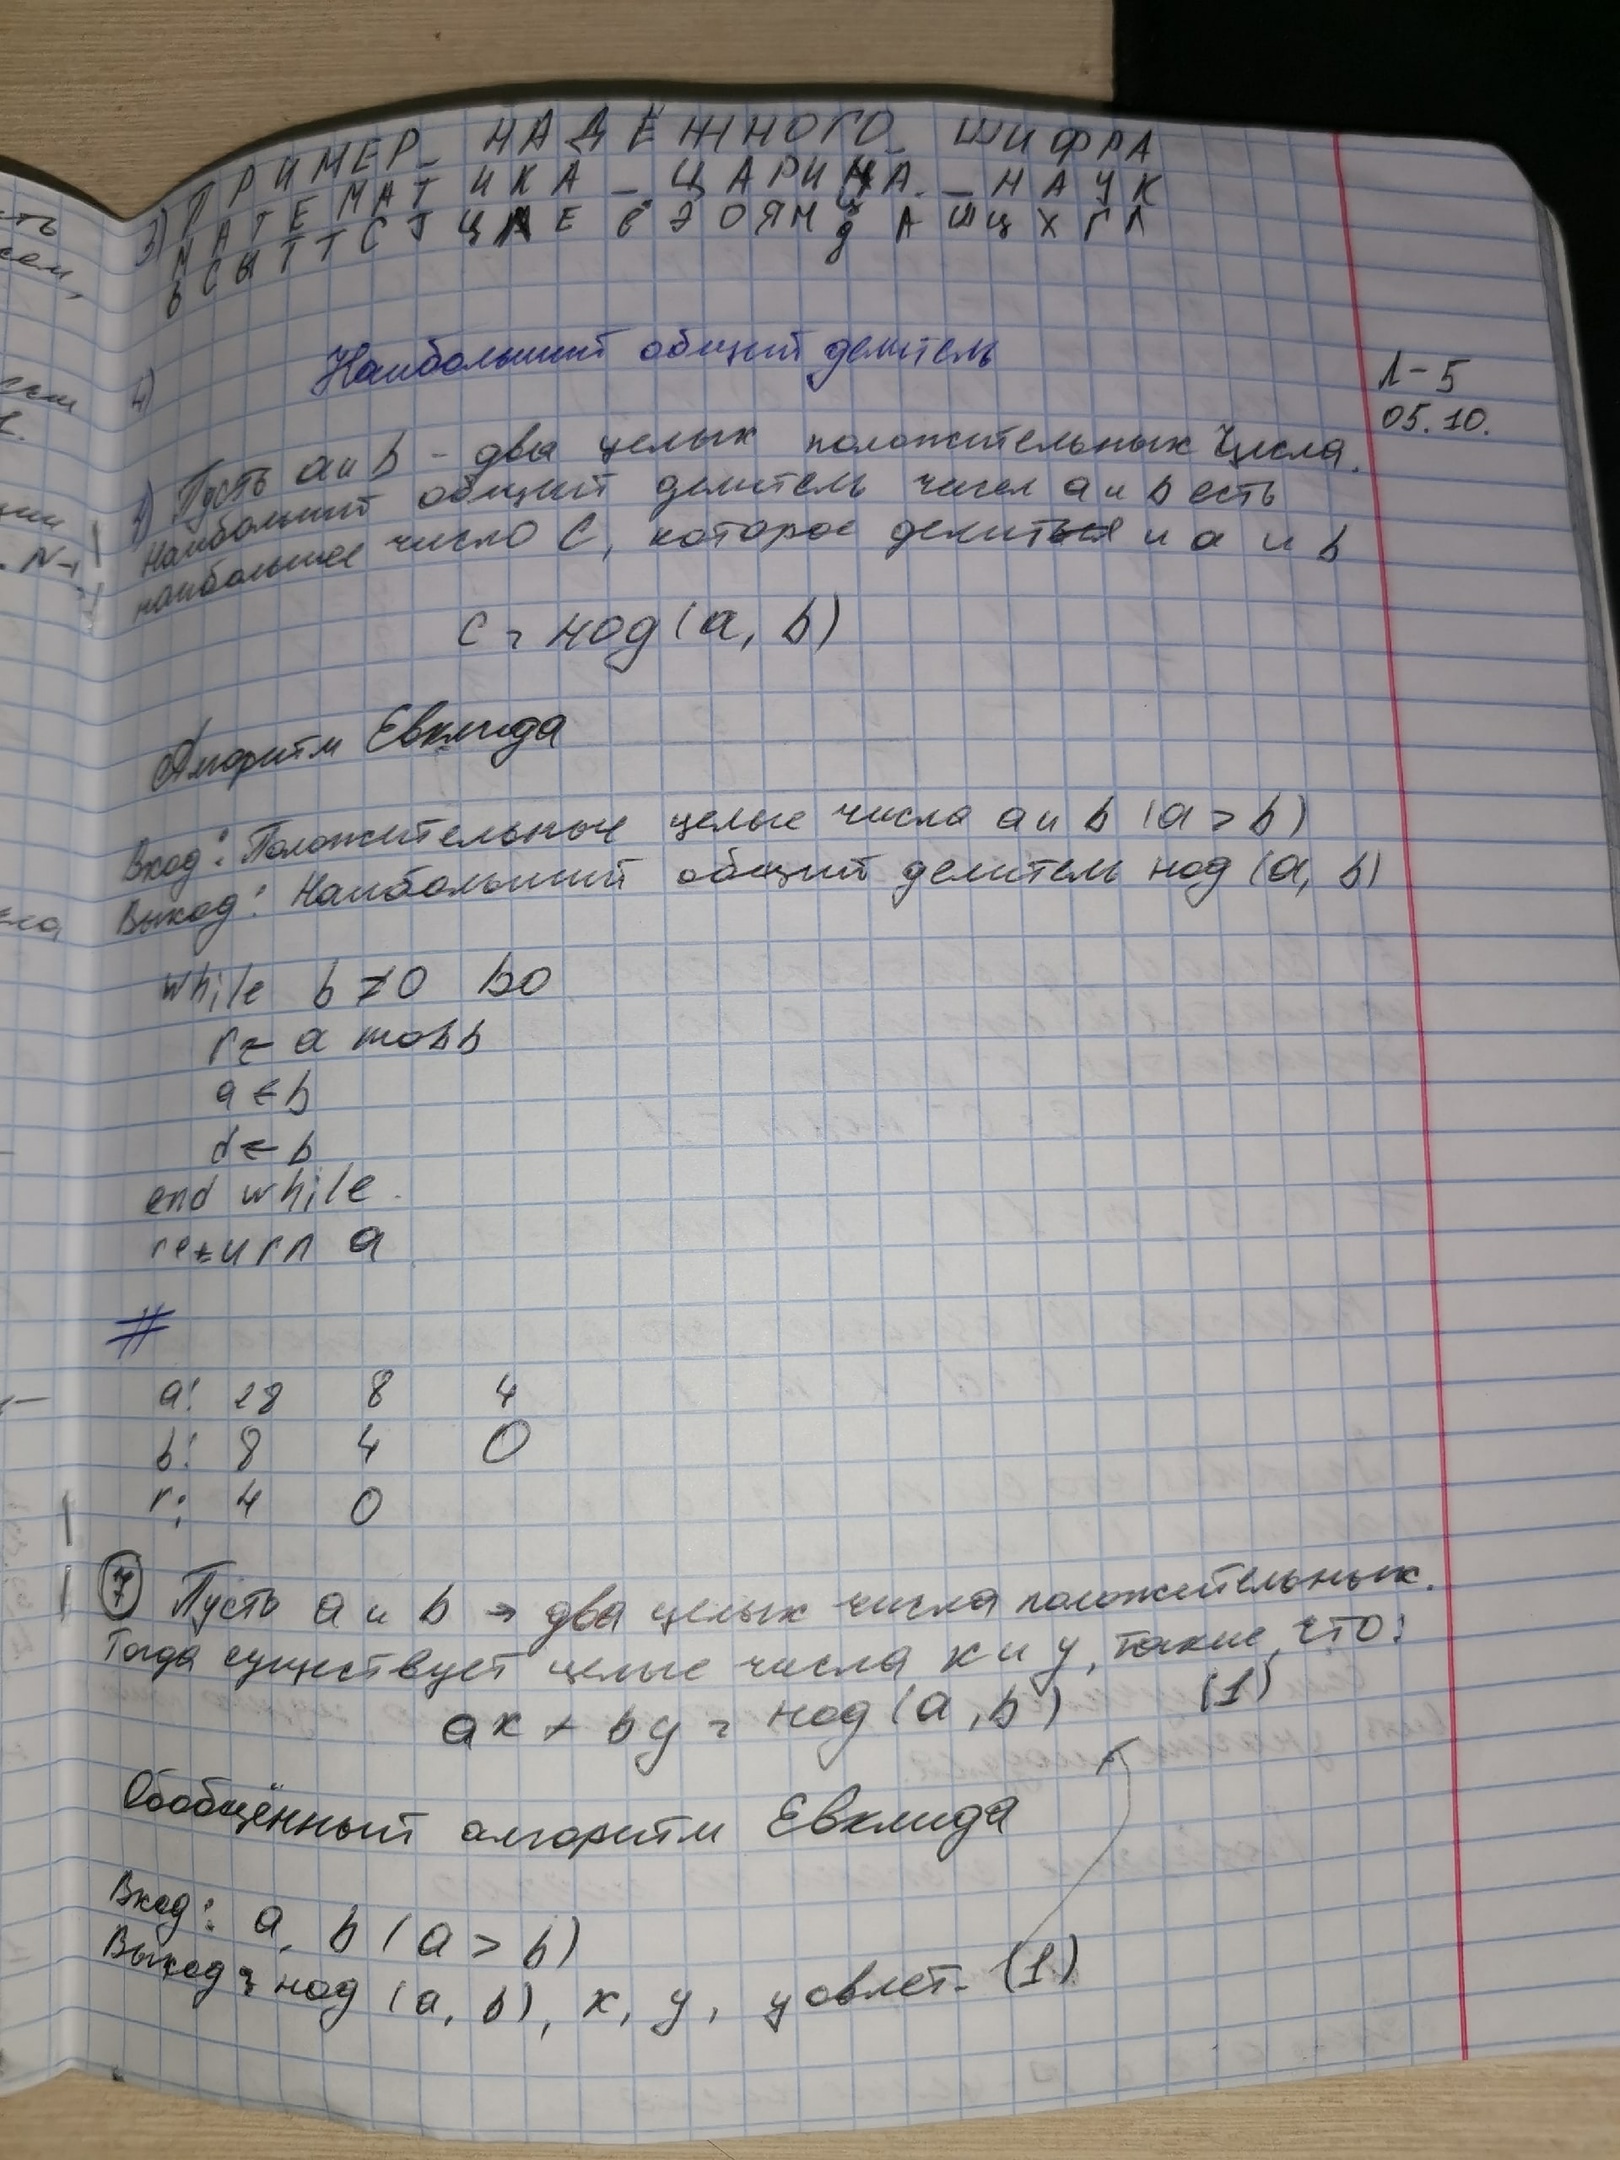 3) ПРИМЕР_ НАДЁЖНОГО_ ШИФРА
МАТЕМАТИКА_ЦАРИЦА_НАУК
ЬСЫТТСТЦ Е ЭОЯН А ШЦХГЛ
Наибольший общий делитель
Л-5
05.10.
Пусть a и b - два целых положительных числа.
Наибольший общий делитель чисел a и b есть
наибольшее число C, которое делит и a и b
c = нод(a, b)
Алгоритм Евклида
Вход: Положительные целые числа a и b (a > b)
Выход: Наибольший общий делитель нод (a, b)
while b ≠ 0 do
r ← a mod b
a ← b
d ← b
end while.
return a
#
a: 28 8 4
b: 8 4 0
r: 4 0
7 Пусть a и b → два целых числа положительных.
Тогда существует целые числа x и y, такие, что:
ax + by = нод (a, b) (1)
Обобщённый алгоритм Евклида
Вход: a, b (a > b)
Выход: нод (a, b), x, y, удовлет. (1)